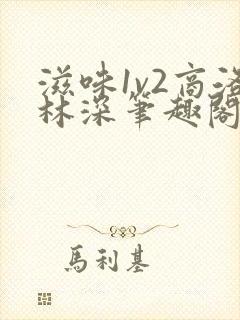 滋味1v2高洛
林深笔趣阁
馬利基